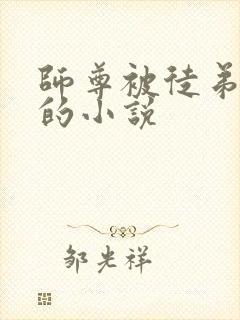 師尊被徒弟
的小說
邹光祥